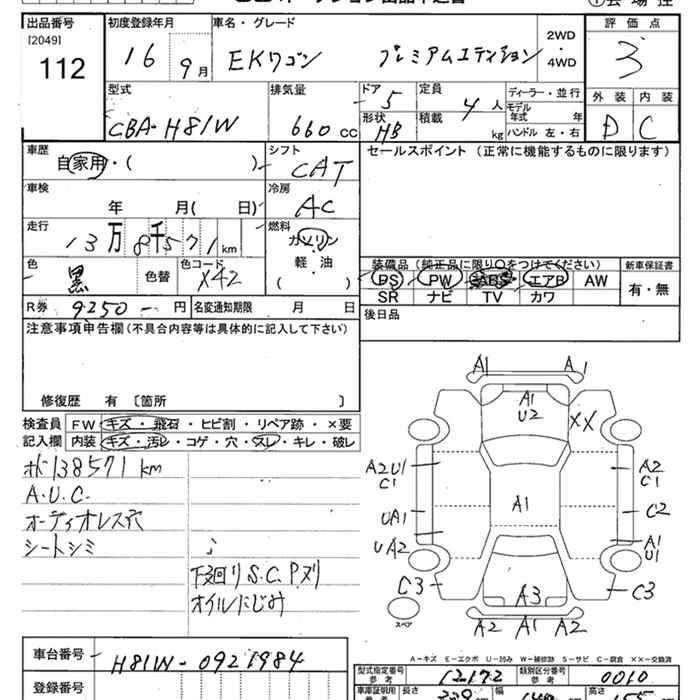 出品番号 初度登録年月 車名・グレード 評価点
[2049] 2WD
112 16 9月 EKワゴン プレミアムエディション ・ 3
4WD
型式 排気量 ドア 5 定員 4人 ディーラー・並行 外装 内装
モデル年式 年
CBA-H81W 660cc 形状 HB 積載 kg ハンドル 左・右 D C
車歴 シフト セールスポイント (正常に機能するものに限ります)
自家用・( ) CAT
車検 冷房
年 月( 日) AC
走行 燃料
13万8千571km ガソリン
軽・油
色 色コード ( ) 装備品 (純正品に限り○をつけてください) 新車保証書
黒 色替 X42 PS PW ABS エアB AW 有・無
SR ナビ TV カワ
R券 9250 円 名変通知期限 月 日 後日品
注意事項申告欄(不具合内容等は具体的に記入して下さい)
修復歴 有 〔箇所 〕
検査員 FW キズ・飛石・ヒビ割・リペア跡・×要
記入欄 内装 キズ・汚レ・コゲ・穴・スレ・キレ・破レ
138571km
A.U.C.
オーディオレス穴
シートシミ
下回りS.C.Pヌリ
オイルにじみ
A1 A1
A1
U2 XX
A2U1 A2
C1 C1
A1
UA1 C2
UA2 A1
U1
C3 A3 C3
スペア
A2 A1 A2
A-キズ E-エクボ U-凹み W-補修跡 S-サビ C-腐食 ××-交換済
車台番号 H81W-0921984
型式指定番号 参考 12172 類別区分番号 参考 0010
登録番号 車庫証明用 長さ 幅 高さ